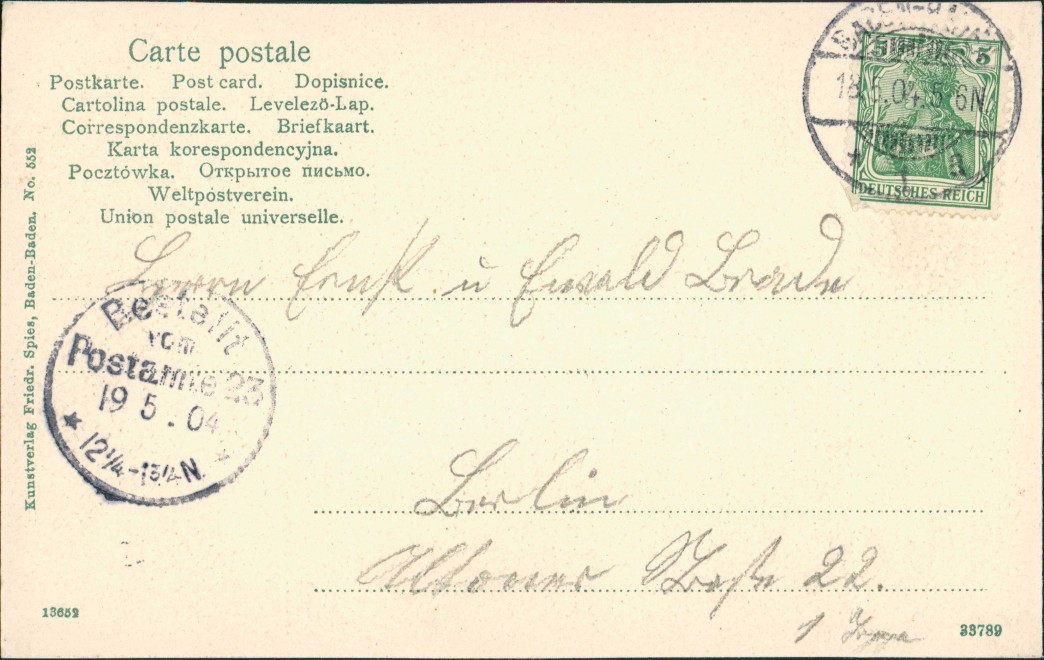 Carte postale
Postkarte. Post card. Dopisnice.
Cartolina postale. Levelező-Lap.
Correspondenzkarte. Briefkaart.
Karta korespondencyjna.
Pocztówka. Открытое письмо.
Weltpostverein.
Union postale universelle.
BADEN-BADEN
18.5.04. 5-6N.
* 1 a
5 5
DEUTSCHES REICH
Herrn Ernst u Ewald Brade
Bestellt
vom
Postamte 23
19 5.04
* 12¼-1¾N. *
Berlin
Altoner Straße 22.
1
Kunstverlag Friedr. Spies, Baden-Baden. No. 552
13652
33789